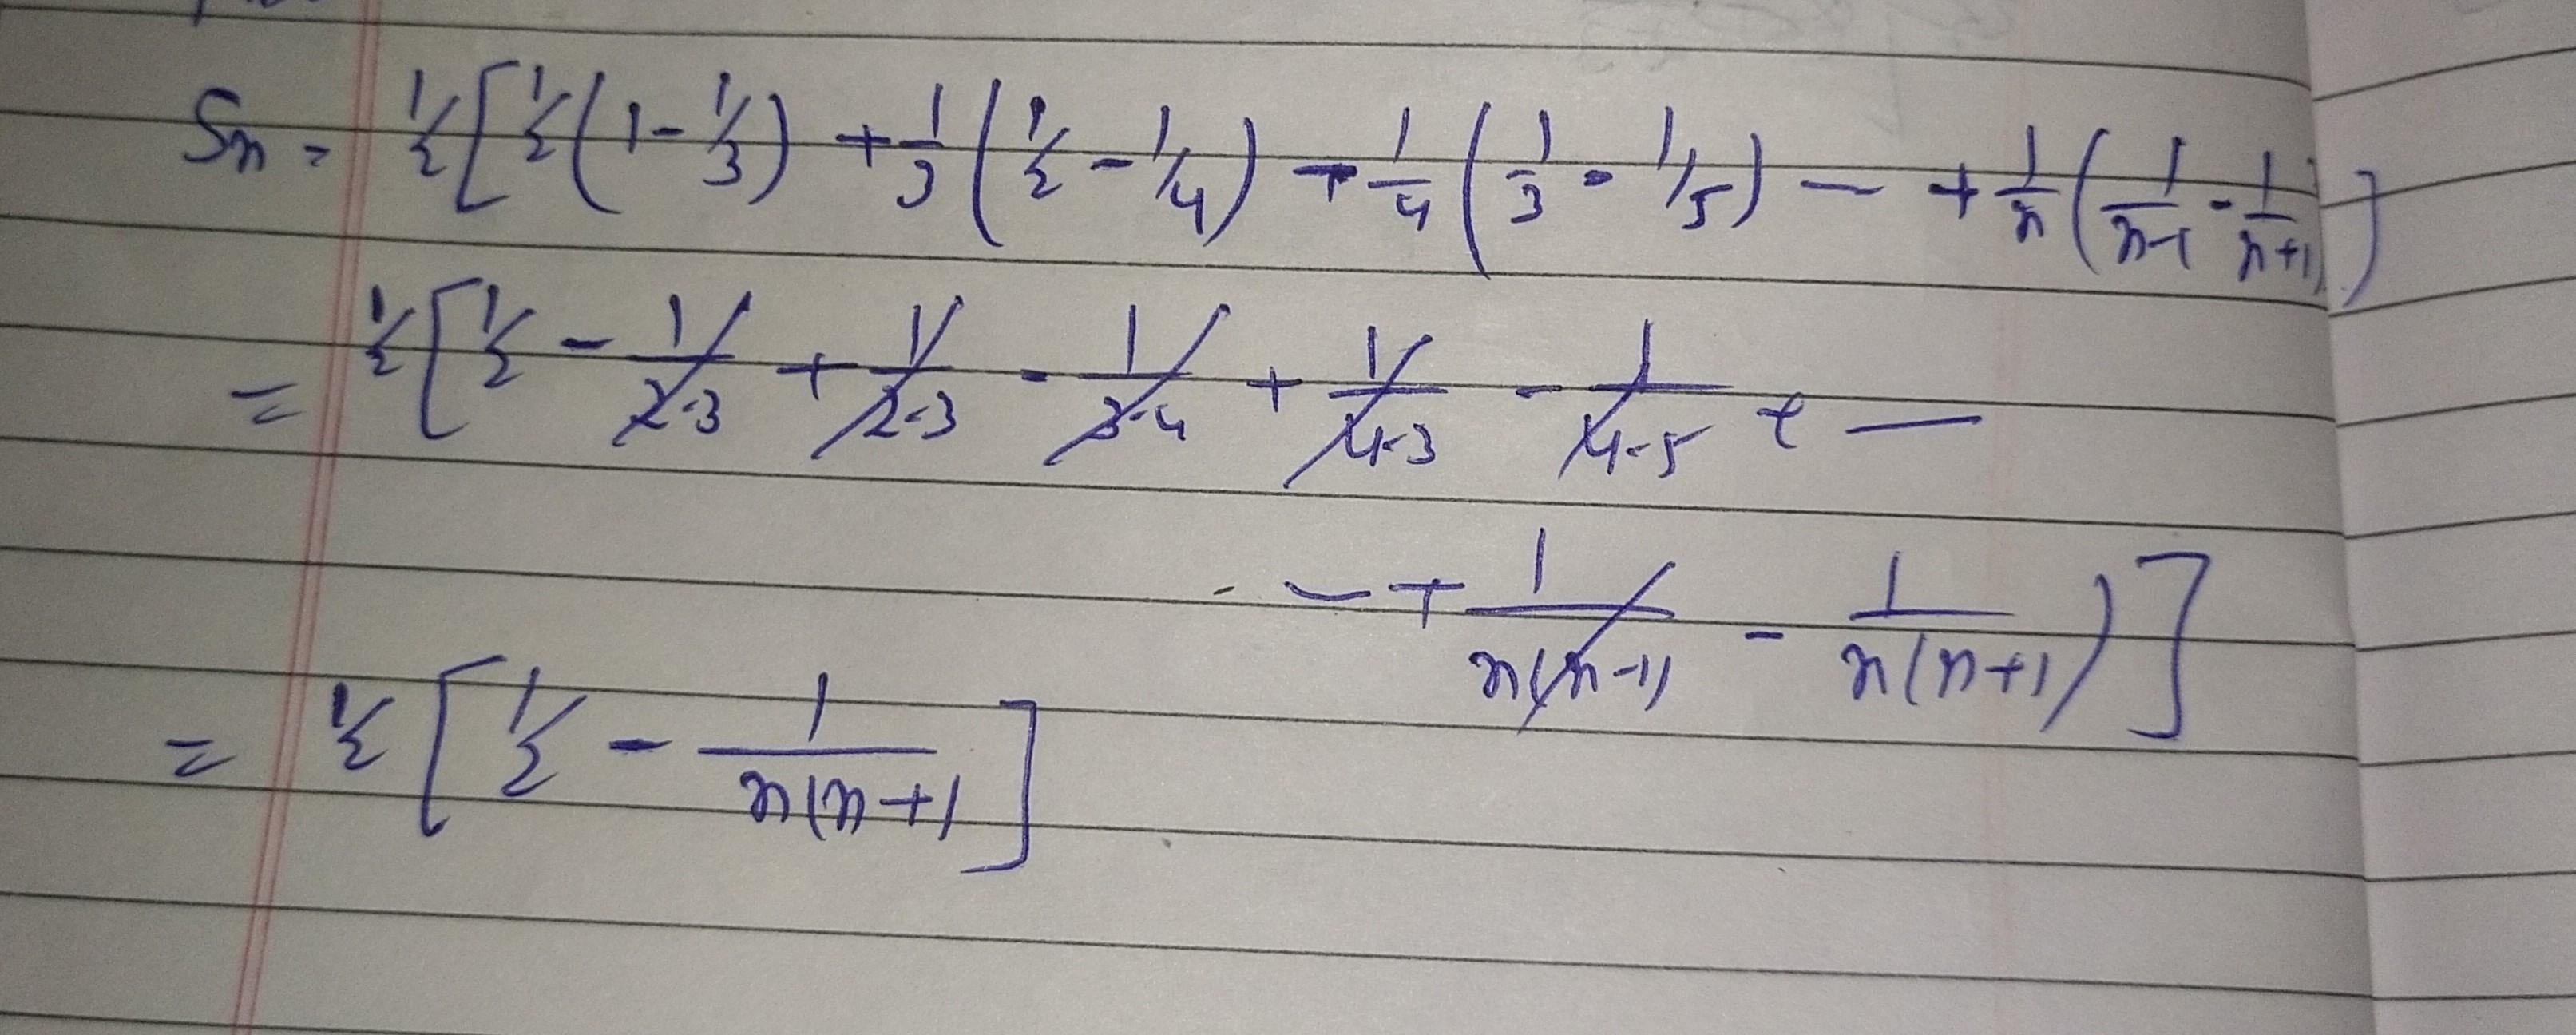 Sn = 1/2 [ 1/2 ( 1 - 1/3 ) + 1/3 ( 1/2 - 1/4 ) + 1/4 ( 1/3 - 1/5 ) — + 1/n ( 1/n-1 - 1/n+1 ) ]
= 1/2 [ 1/2 - 1/2·3 + 1/2·3 - 1/3·4 + 1/4·3 - 1/4·5 + —
- — + 1/n(n-1) - 1/n(n+1) ) ]
= 1/2 [ 1/2 - 1/n(n+1) ]